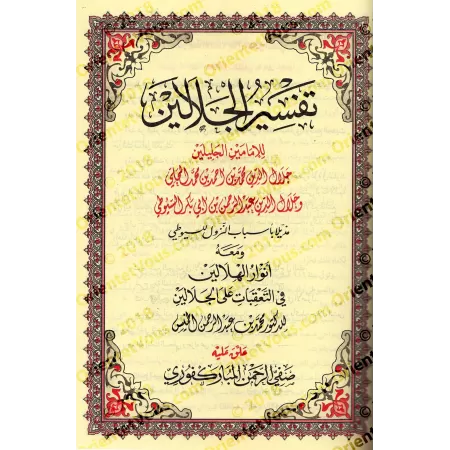 تفسير الجلالين
للإمامين الجليلين
جلال الدين محمد بن أحمد بن محمد المحلي
وجلال الدين عبد الرحمن بن أبي بكر السيوطي
مذيلا بأسباب النزول للسيوطي
ومعه
أنوار الهلالين
في التعقبات على الجلالين
للدكتور محمد بن عبد الرحمن الخميس
علق عليه
صفي الرحمن المباركفوري
© OrientetVous.com 2018